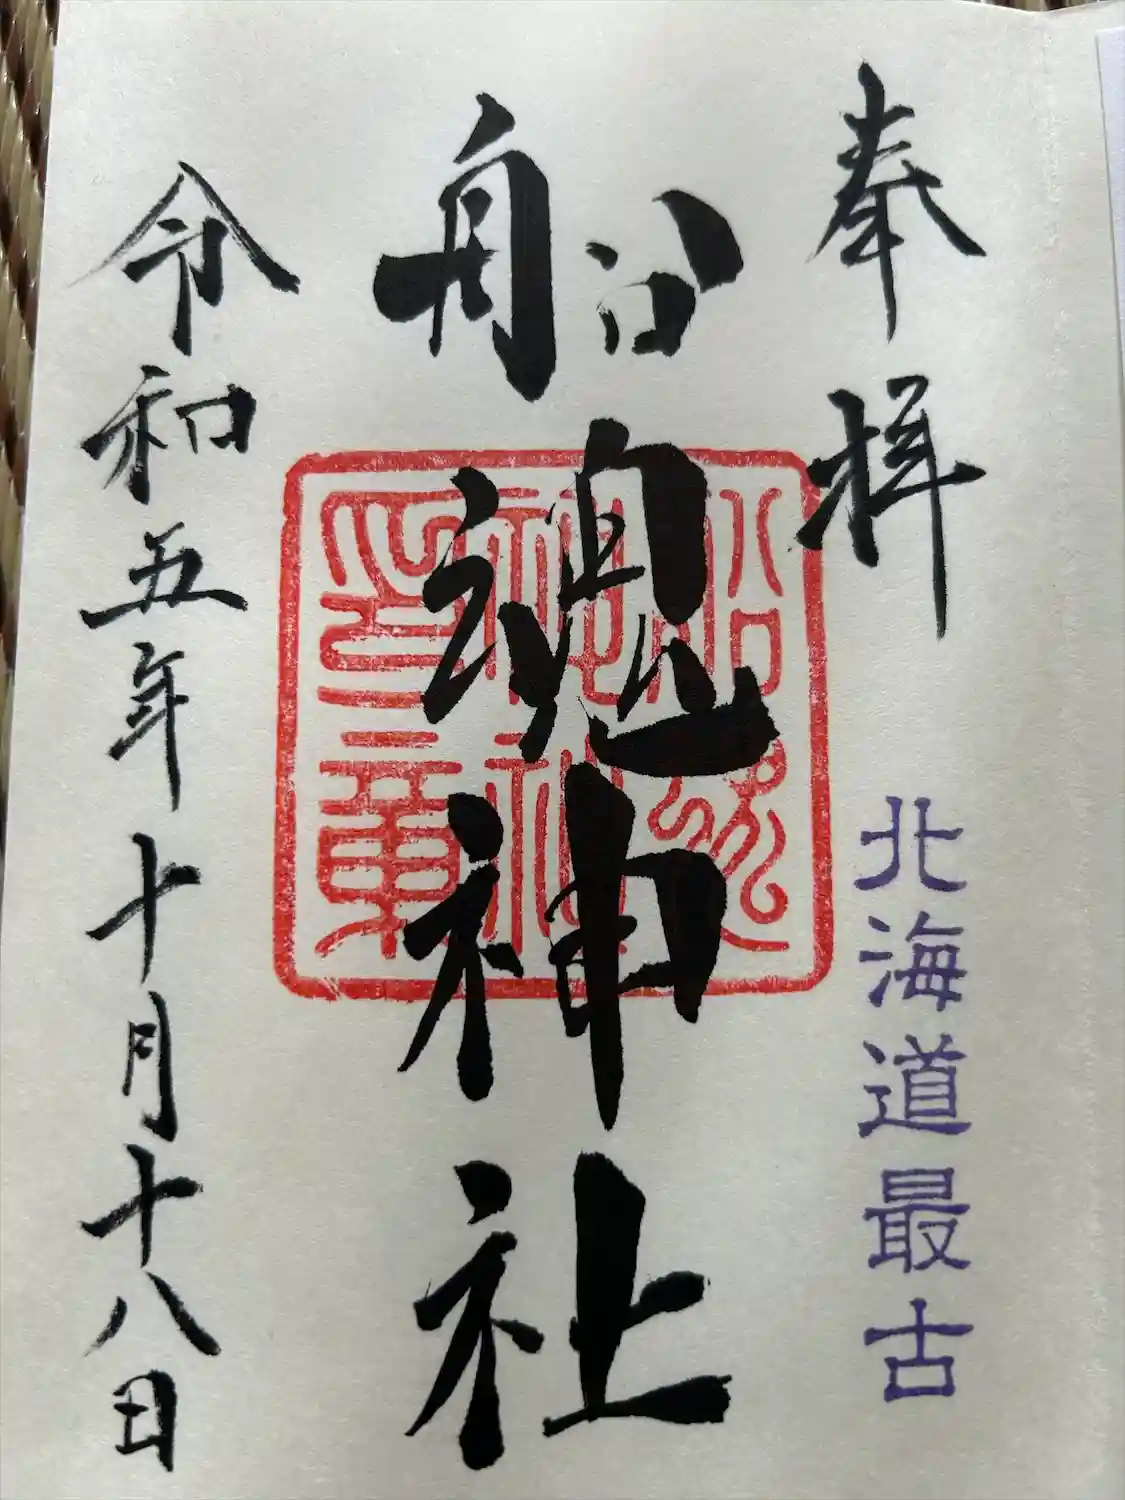 奉拝
北海道最古
船魂神社
船魂神社神印章
令和五年十月十八日